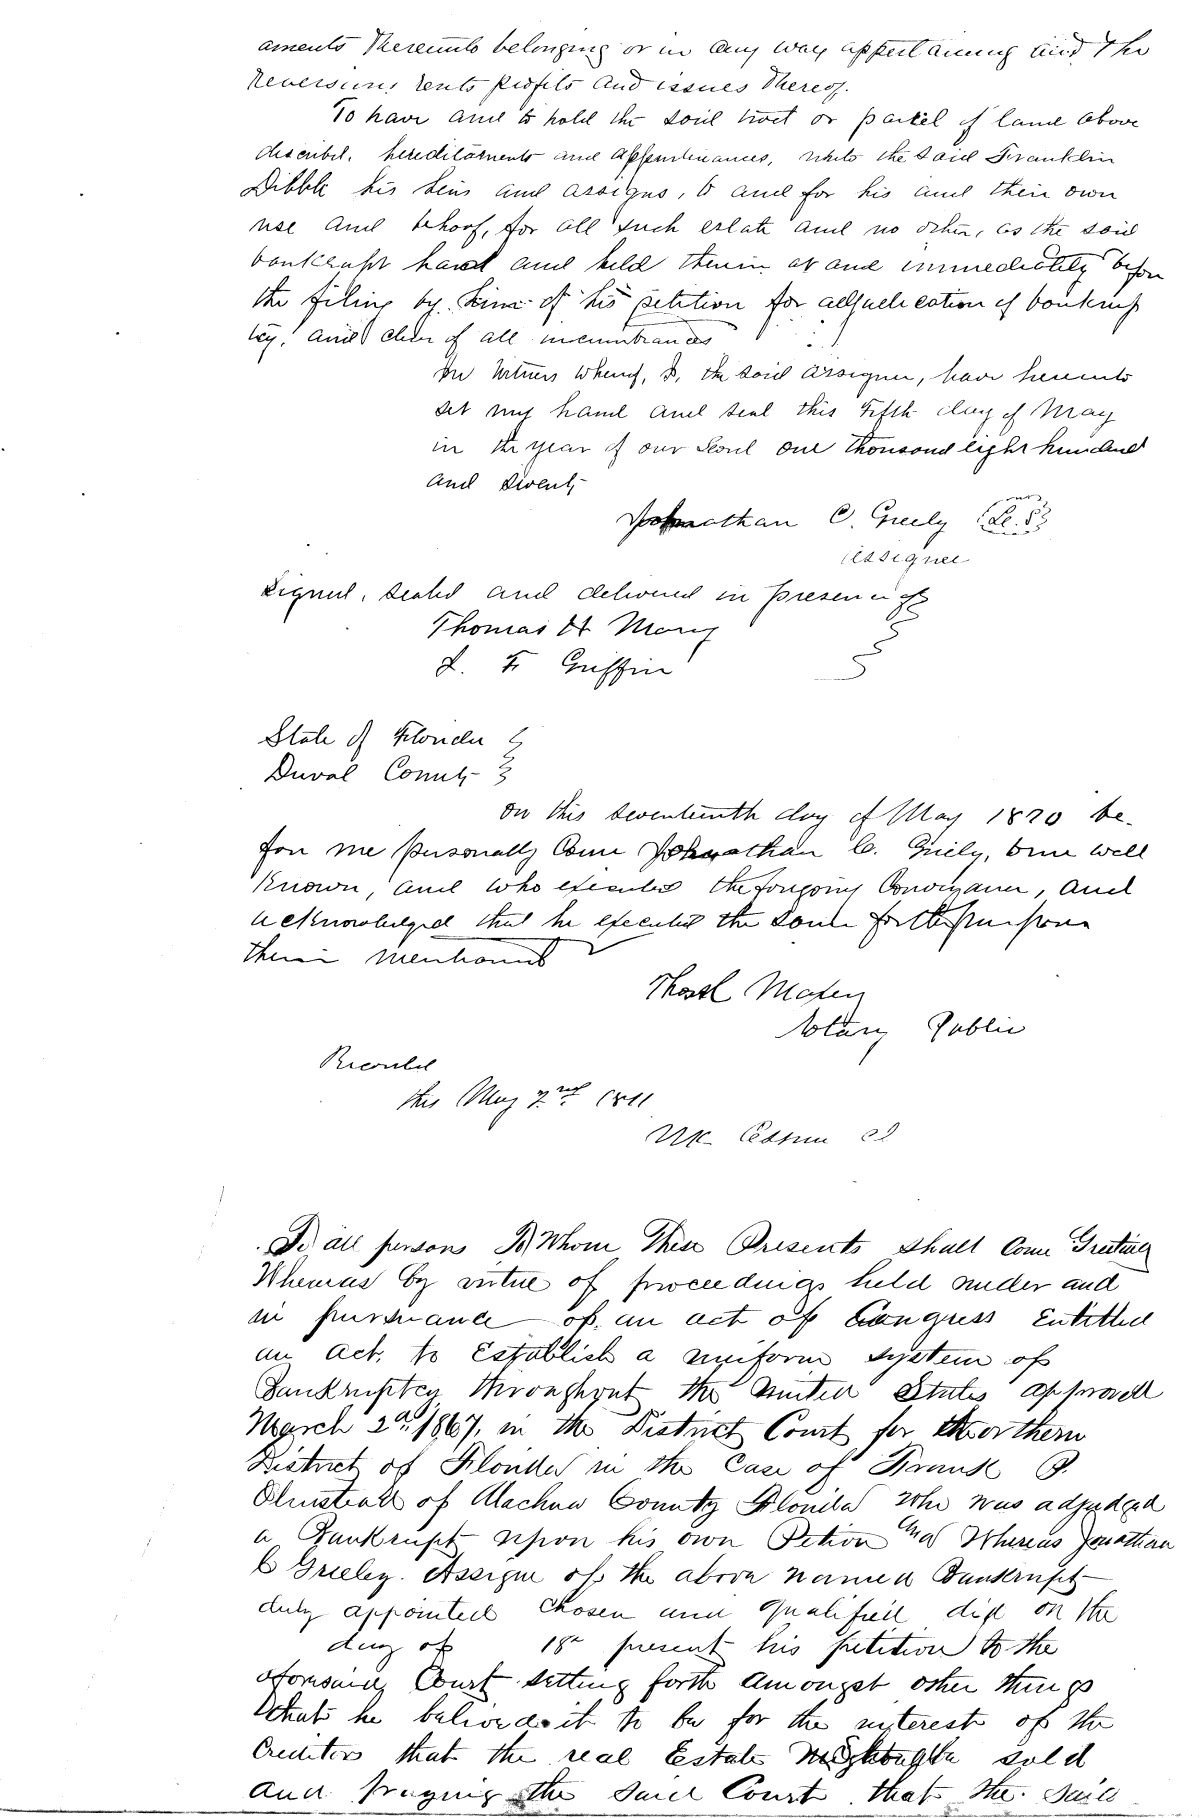 aments thereunto belonging or in any way appertaining and the
reversions rents profits and issues thereof.
To have and to hold the said tract or parcel of land above
describd, hereditaments and appurtenances, unto the said Franklin
Dibble his heirs and assigns, to and for his and their own
use and behoof, for all such estate and no other, as the said
bankrupt had and held therein at and immediately before
the filing by him of his petition for adjudication of bankrup
tcy, and clear of all incumbrances
In Witness Whereof, I, the said assignee, have hereunto
set my hand and seal this Fifth day of May
in the year of our Lord one thousand eight hundred
and seventy
Johnathan C. Greely (L. S)
assignee
Signed, sealed and delivered in presence of
Thomas H
L. F Griffin
State of Florida
Duval County
On this seventeenth day of May 1870 be-
fore me personally Came Johnathan C. Greely, to me well
Known, and who executed the foregoing Conveyance, and
acknowledged that he executed the same for the purposes
therein mentioned
Notary Public
Recorded
this May 2nd 1871
To all persons To Whom These Presents shall Come Greeting
Whereas by virtue of proceedings held under and
in pursuance of an act of Congress Entitled
an act to Establish a uniform system of
Bankruptcy throughout the United States approved
March 2d 1867, in the District Court for the Northern
District of Florida in the Case of Frank P.
Olmstead of Alachua County Florida who was adjudged
a Bankrupt upon his own Petion And Whereas Jonathan
C Greeley. Assigne of the above named Bankrupt
duly appointed Chosen and qualified did on the
day of 18 present his petition to the
aforesaid Court setting forth amongst other things
that he belived it to be for the interest of the
Creditors that the real Estate sold
and praying the said Court that the said